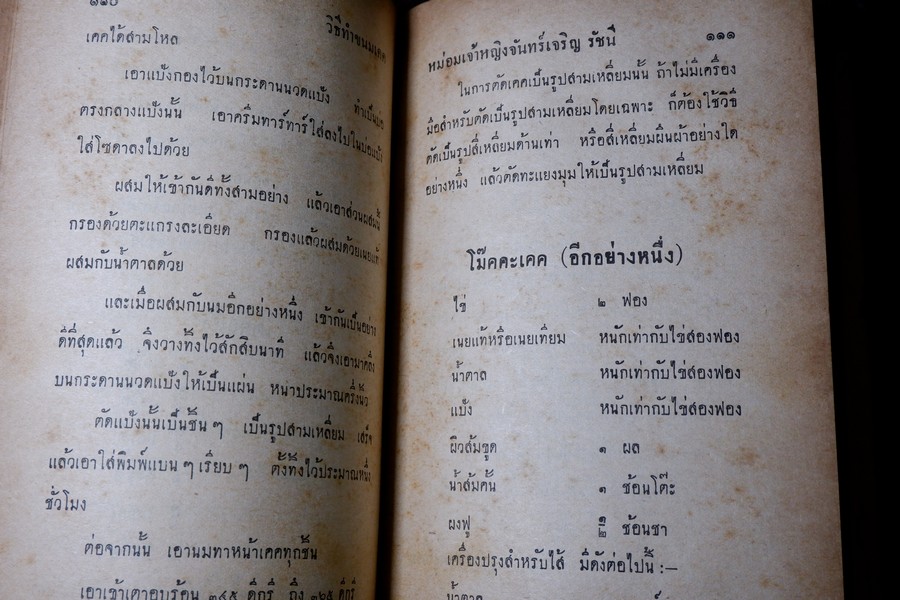 ๑๑๐
วิธีทำขนมเคค
เคคได้สามโหล
เอาแป้งกองไว้บนกระดานนวดแป้ง ทำเป็นบ่อ
ตรงกลางแป้งนั้น เอาครีมทาร์ทาร์ใส่ลงไปในบ่อแป้ง
ใส่โซดาลงไปด้วย
ผสมให้เข้ากันดีทั้งสามอย่าง แล้วเอาส่วนผสมนี้
กรองด้วยตะแกรงละเอียด กรองแล้วผสมด้วยเนยแท้
ผสมกับน้ำตาลด้วย
และเมื่อผสมกับนมอีกอย่างหนึ่ง เข้ากันเป็นอย่าง
ดีที่สุดแล้ว จึงวางทิ้งไว้สักสิบนาที แล้วจึงเอามาคลึง
บนกระดานนวดแป้งให้เป็นแผ่น หนาประมาณครึ่งนิ้ว
ตัดแป้งนั้นเป็นชิ้น ๆ เป็นรูปสามเหลี่ยม เสร็จ
แล้วเอาใส่พิมพ์แบน ๆ เรียบ ๆ ตั้งทิ้งไว้ประมาณหนึ่ง
ชั่วโมง
ต่อจากนั้น เอานมทาหน้าเคคทุกชิ้น
เอาเข้าเตาอบร้อน ๓๔๕ ดีกรี ถึง ๓๖๕ ดีกรี
หม่อมเจ้าหญิงจันทร์เจริญ รัชนี ๑๑๑
ในการตัดเคคเป็นรูปสามเหลี่ยมนั้น ถ้าไม่มีเครื่อง
มือสำหรับตัดเป็นรูปสามเหลี่ยมโดยเฉพาะ ก็ต้องใช้วิธี
ตัดเป็นรูปสี่เหลี่ยมด้านเท่า หรือสี่เหลี่ยมผืนผ้าอย่างใด
อย่างหนึ่ง แล้วตัดทะแยงมุมให้เป็นรูปสามเหลี่ยม
โม๊คคะเคค (อีกอย่างหนึ่ง)
ไข่ ๒ ฟอง
เนยแท้หรือเนยเทียม หนักเท่ากับไข่สองฟอง
น้ำตาล หนักเท่ากับไข่สองฟอง
แป้ง หนักเท่ากับไข่สองฟอง
ผิวส้มขูด ๑ ผล
น้ำส้มคั้น ๑ ช้อนโต๊ะ
ผงฟู ๑/๒ ช้อนชา
เครื่องปรุงสำหรับไส้ มีดังต่อไปนี้ :—
น้ำตาล